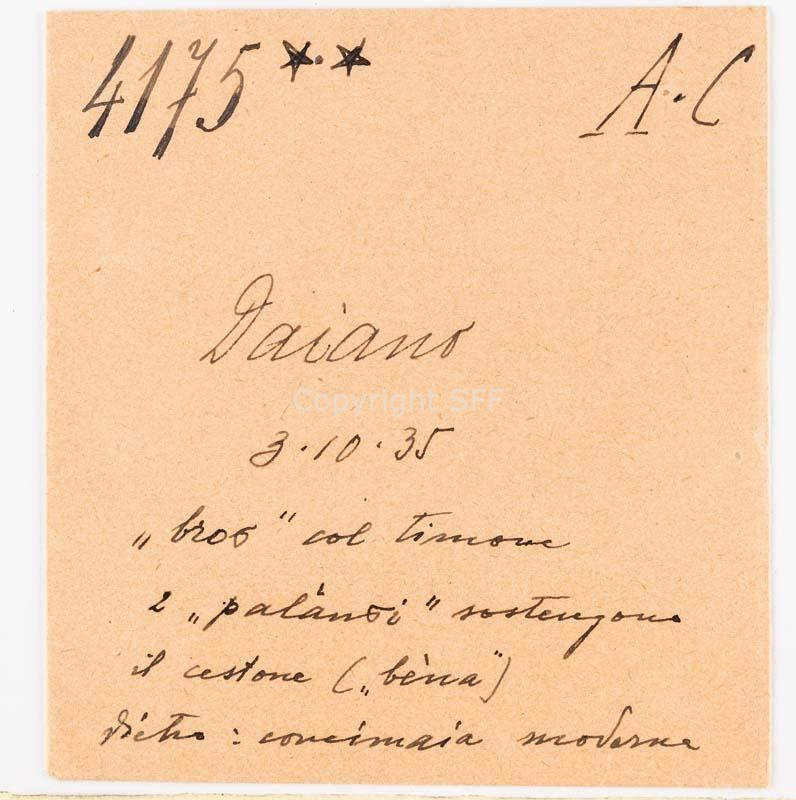 4175 ★.★ A.C
Daiano
Copyright SFF
3.10.35
„broσ" col timone
2 „palànσi" sostengono
il cestone („bèna")
dietro : concimaia moderna